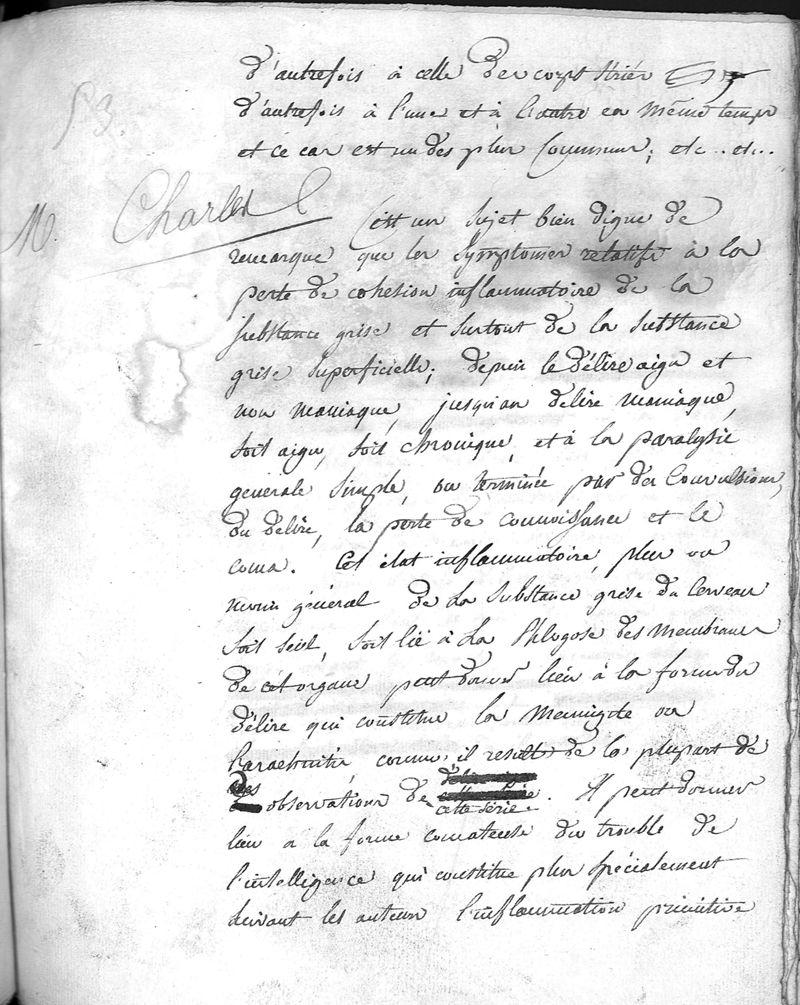 d'autrefois à celle des corps striés
53.
d'autrefois à l'une et à l'autre en même temps
et ce cas est un des plus communs; etc.. etc...
M. Charles
C'est un sujet bien digne de
remarque que les symptomes relatifs à la
perte de cohésion inflammatoire de la
substance grise et surtout de la substance
grise superficielle; depuis le délire aigu et
non maniaque, jusqu'au délire maniaque,
soit aigu, soit chronique, et à la paralysie
générale simple, ou terminée par des convulsions,
du délire, la perte de connoissance et le
coma. Cet état inflammatoire, plus ou
moins général de la substance grise du cerveau
soit seul, soit lié à la phlogose des membranes
de cet organe peut donner lieu à la forme du
délire qui constitue la méningite ou
l'arachnitis, comme il résulte de la plupart de
des observations de cette série. Il peut donner
lieu a la forme comateuse du trouble de
l'intelligence qui constitue plus spécialement
suivant les auteurs l'inflammation primitive